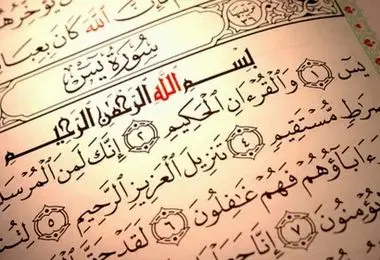 ٱللَّهَ كَانَ بِعِبَا
سُورَةُ يسٓ
بِسْمِ ٱللَّهِ ٱلرَّحْمَٰنِ ٱلرَّحِيمِ
يسٓ ١ وَٱلْقُرْءَانِ ٱلْحَكِيمِ ٢ إِنَّكَ لَمِنَ ٱلْمُرْسَلِ
صِرَٰطٍ مُّسْتَقِيمٍ ٤ تَنزِيلَ ٱلْعَزِيزِ ٱلرَّحِيمِ ٥ لِتُنذِ
ءَابَآؤُهُمْ فَهُمْ غَٰفِلُونَ ٦ لَقَدْ حَقَّ
يُؤْمِنُونَ ٧ إِنَّا جَعَلْنَا